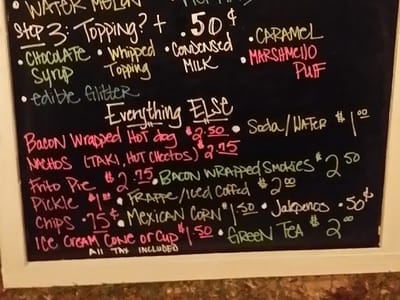 • WATER MELON
Step 3: Topping? + .50¢
• CHOCOLATE SYRUP • Whipped Topping • CONDENSED MILK • CARAMEL
• MARSHMELLO PUFF
• edible Glitter
Everything ELSE
BACON WRAPPED HOT dog $2.50 • Soda/WATER $1.00
NACHOS (TAKI, HOT CHEETOS) $2.75
Frito Pie $2.75 • BACON WRAPPED SMOKIES $2.50
Pickle $1.00 • FRAPPE/Iced Coffee $2.00
Chips .75¢ • MEXICAN CORN $1.50 • Jalapenos .50¢
ICE CREAM CONE OR CUP $1.50 • GREEN TEA $2.00
All TAX INCLUDED